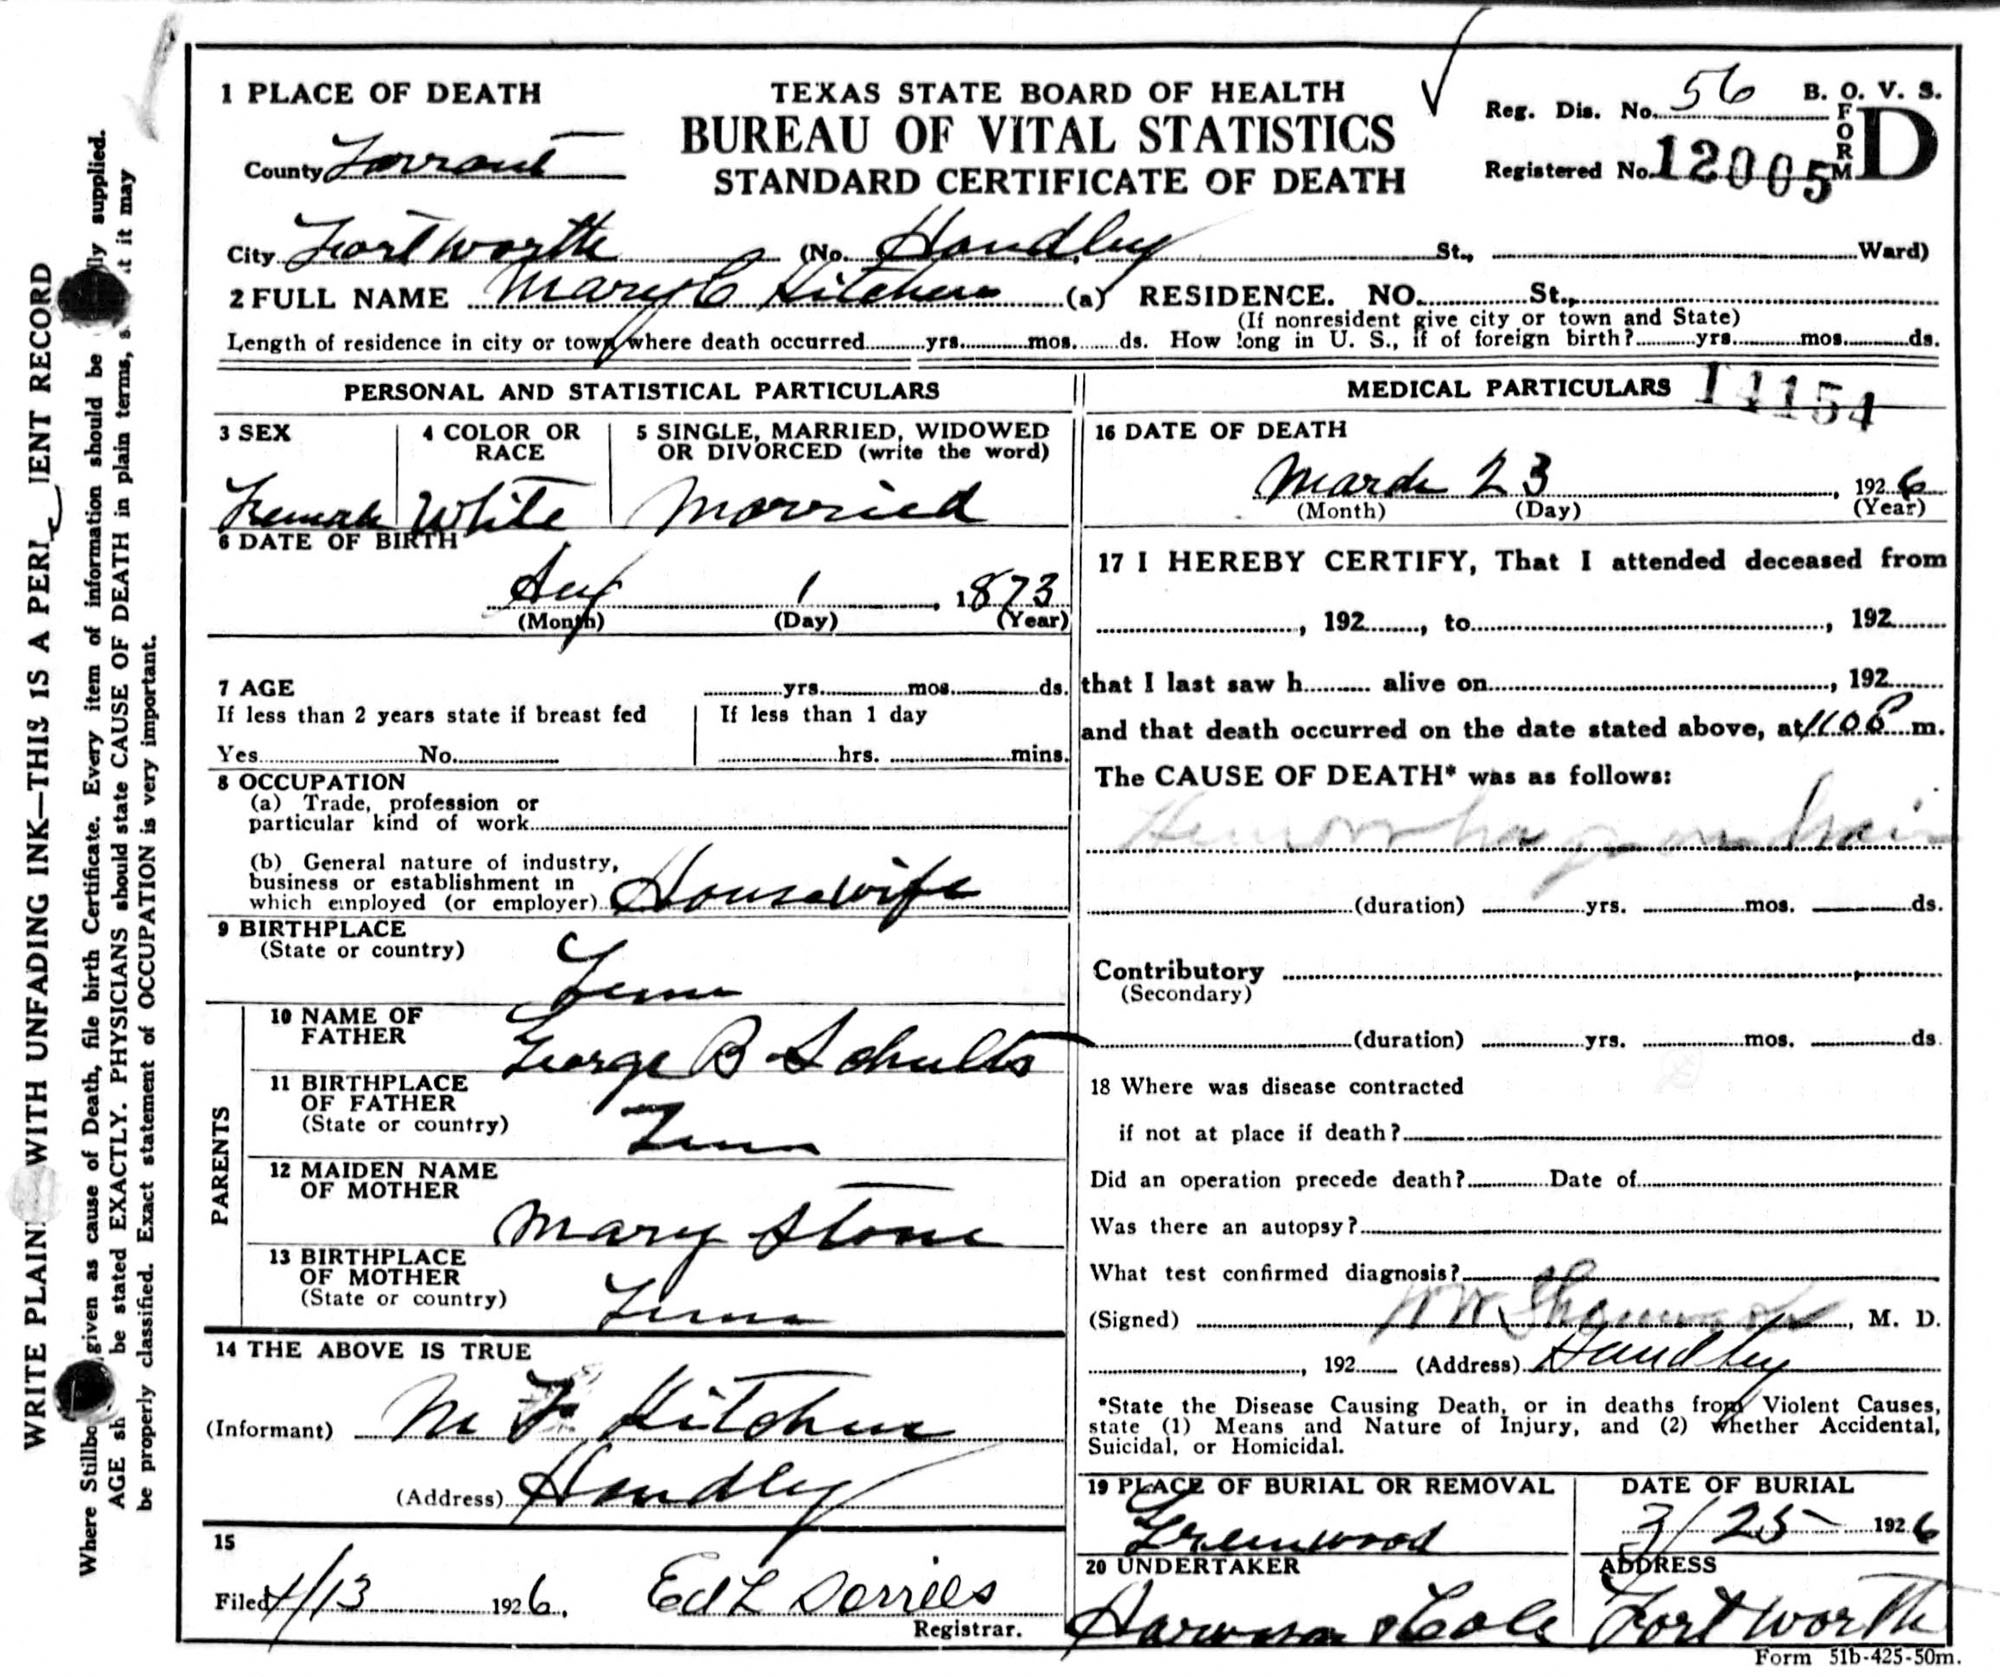 1 PLACE OF DEATH
TEXAS STATE BOARD OF HEALTH
BUREAU OF VITAL STATISTICS
STANDARD CERTIFICATE OF DEATH
Reg. Dis. No. 56
B. O. V. S.
FORM D
Registered No. 12005
County Tarrant
City Fort Worth (No. Handley St., Ward)
2 FULL NAME Mary C Kitchens (a) RESIDENCE. NO. St.,
(If nonresident give city or town and State)
Length of residence in city or town where death occurred yrs. mos. ds. How long in U. S., if of foreign birth? yrs. mos. ds.
PERSONAL AND STATISTICAL PARTICULARS
3 SEX
4 COLOR OR RACE
5 SINGLE, MARRIED, WIDOWED
OR DIVORCED (write the word)
Female White Married
6 DATE OF BIRTH
Aug 1, 1873
(Month) (Day) (Year)
7 AGE yrs. mos. ds.
If less than 2 years state if breast fed
Yes No
If less than 1 day
hrs. mins.
8 OCCUPATION
(a) Trade, profession or
particular kind of work
(b) General nature of industry,
business or establishment in
which employed (or employer) Housewife
9 BIRTHPLACE
(State or country)
Tenn
PARENTS
10 NAME OF
FATHER
George B Schults
11 BIRTHPLACE
OF FATHER
(State or country)
Tenn
12 MAIDEN NAME
OF MOTHER
Mary Stone
13 BIRTHPLACE
OF MOTHER
(State or country)
Tenn
14 THE ABOVE IS TRUE
(Informant) M F Kitchens
(Address) Handley
15
Filed 4/13 1926, Ed L
Registrar.
MEDICAL PARTICULARS 14154
16 DATE OF DEATH
March 23, 1926
(Month) (Day) (Year)
17 I HEREBY CERTIFY, That I attended deceased from
, 192 , to , 192
that I last saw h alive on , 192
and that death occurred on the date stated above, at m.
The CAUSE OF DEATH* was as follows:
Hemorrhage on brain
(duration) yrs. mos. ds.
Contributory
(Secondary)
(duration) yrs. mos. ds.
18 Where was disease contracted
if not at place if death?
Did an operation precede death? Date of
Was there an autopsy?
What test confirmed diagnosis?
(Signed) , M. D.
, 192 (Address) Handley
*State the Disease Causing Death, or in deaths from Violent Causes,
state (1) Means and Nature of Injury, and (2) whether Accidental,
Suicidal, or Homicidal.
19 PLACE OF BURIAL OR REMOVAL
Greenwood
DATE OF BURIAL
3/25 1926
20 UNDERTAKER
& Cole
ADDRESS
Fort Worth
Form 51b-425-50m.
WRITE PLAIN WITH UNFADING INK—THIS IS A PERI ENT RECORD
Where Stillbo given as cause of Death, file birth Certificate. Every item of information should be lly supplied.
AGE sh be stated EXACTLY. PHYSICIANS should state CAUSE OF DEATH in plain terms, s t it may
be properly classified. Exact statement of OCCUPATION is very important.